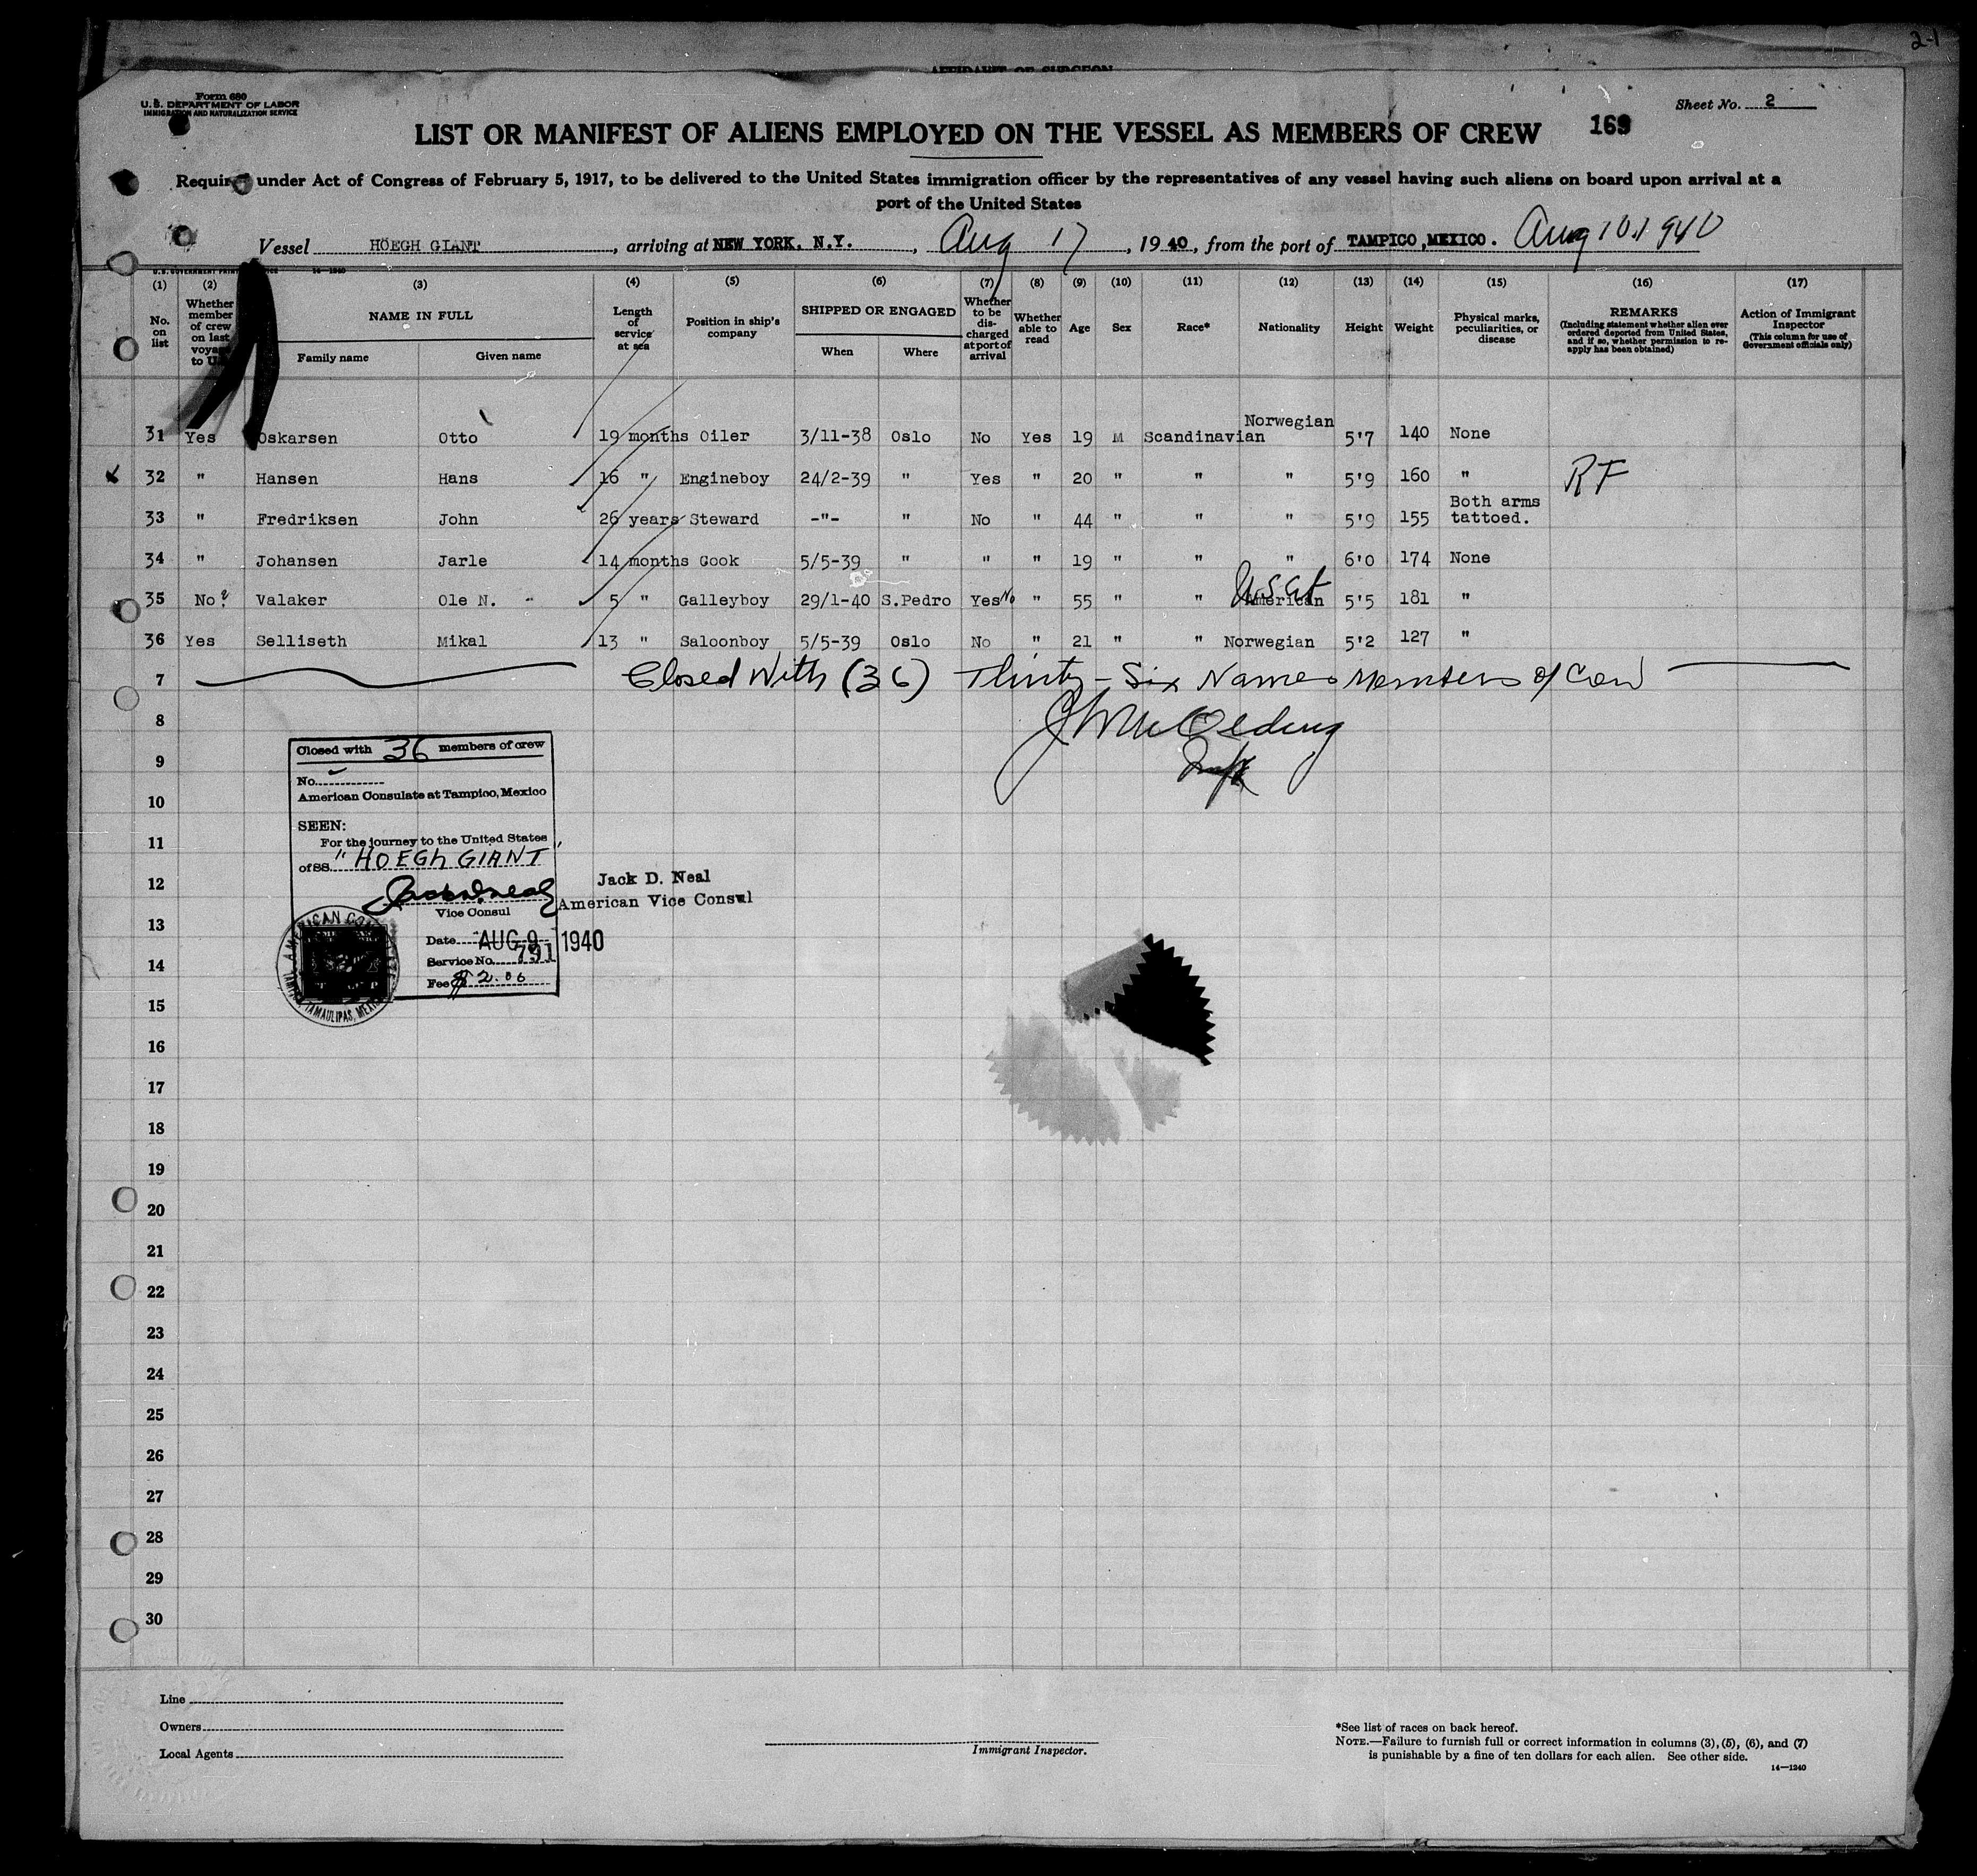 2-1
AFFIDAVIT OF SURGEON
Form 680
U. S. DEPARTMENT OF LABOR
IMMIGRATION AND NATURALIZATION SERVICE
Sheet No. 2
LIST OR MANIFEST OF ALIENS EMPLOYED ON THE VESSEL AS MEMBERS OF CREW 169
Required under Act of Congress of February 5, 1917, to be delivered to the United States immigration officer by the representatives of any vessel having such aliens on board upon arrival at a
port of the United States
Vessel HÖEGH GIANT, arriving at NEW YORK, N.Y., Aug 17, 1940, from the port of TAMPICO, MEXICO. Aug 10 1940
14-1240
(1) (2) (3) (4) (5) (6) (7) (8) (9) (10) (11) (12) (13) (14) (15) (16) (17)
No. on list
Whether member of crew on last voyage to U.S.
NAME IN FULL
Family name Given name
Length of service at sea
Position in ship's company
SHIPPED OR ENGAGED
When Where
Whether to be discharged at port of arrival
Whether able to read
Age Sex Race* Nationality Height Weight
Physical marks, peculiarities, or disease
REMARKS
(Including statement whether alien ever ordered deported from United States, and if so, whether permission to reapply has been obtained)
Action of Immigrant Inspector
(This column for use of Government officials only)
31 Yes Oskarsen Otto 19 months Oiler 3/11-38 Oslo No Yes 19 M Scandinavian Norwegian 5'7 140 None
32 " Hansen Hans 16 " Engineboy 24/2-39 " Yes " 20 " " " 5'9 160 " RF
33 " Fredriksen John 26 years Steward -"- " No " 44 " " " 5'9 155 Both arms tattoed.
34 " Johansen Jarle 14 months Cook 5/5-39 " " " 19 " " " 6'0 174 None
35 No? Valaker Ole N. 5 " Galleyboy 29/1-40 S.Pedro Yes No " 55 " " American 5'5 181 "
36 Yes Selliseth Mikal 13 " Saloonboy 5/5-39 Oslo No " 21 " " Norwegian 5'2 127 "
7 Closed With (36) Thirty-Six Names Members of Crew
8
9
10
11
12
13
14
15
16
17
18
19
20
21
22
23
24
25
26
27
28
29
30
Closed with 36 members of crew
No.
American Consulate at Tampico, Mexico
SEEN:
For the journey to the United States
of SS. "HOEGH GIANT"
Jack D. Neal
Vice Consul
Jack D. Neal
American Vice Consul
Date AUG 9 1940
Service No. 791
Fee $2.00
Line
Owners
Local Agents
Immigrant Inspector.
*See list of races on back hereof.
NOTE.—Failure to furnish full or correct information in columns (3), (5), (6), and (7)
is punishable by a fine of ten dollars for each alien. See other side.
14—1240